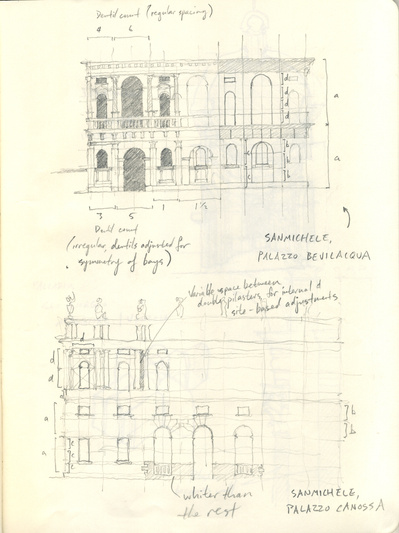 Dentil count (regular spacing)
4 6
d
d
d
d
a
b
b
c
c
a
3 5 1 1½
Dentil count
(irregular, dentils adjusted for
symmetry of bays)
SANMICHELE,
PALAZZO BEVILACQUA
Variable space between
double pilasters for internal &
site-based adjustments
d
d
d
a
a
b
b
c
c
c
a
whiter than
the rest
SANMICHELE,
PALAZZO CANOSSA